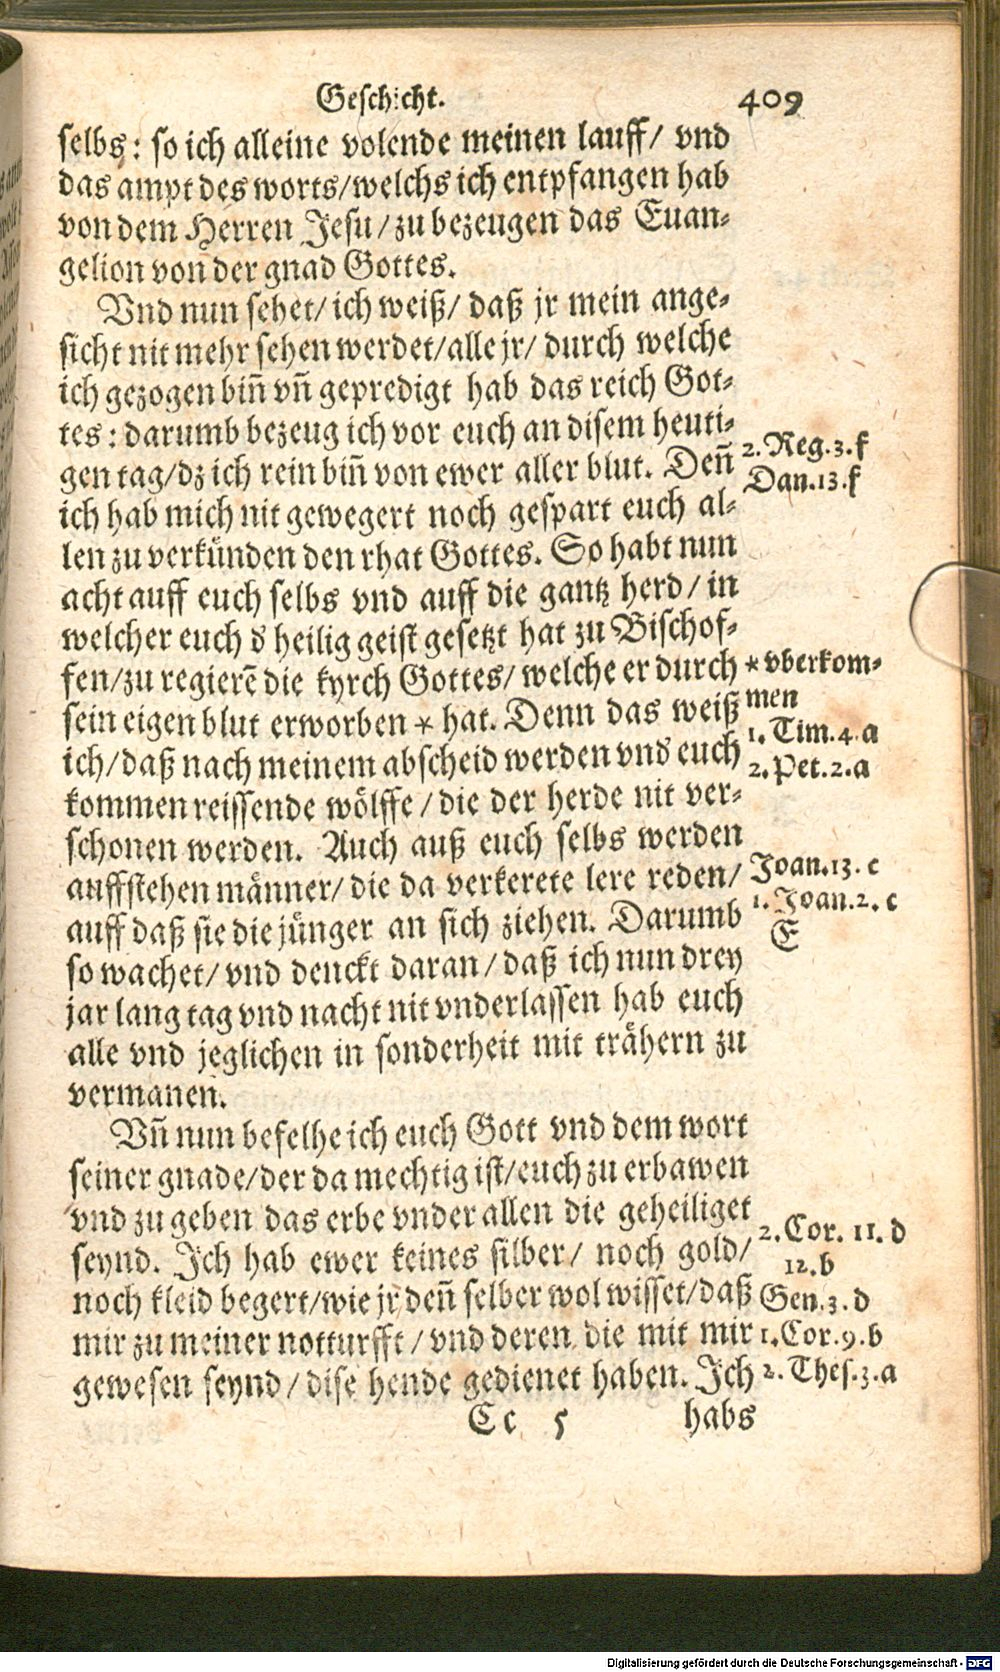 Geschicht. 409
selbs: so ich alleine volende meinen lauff/ vnd
das ampt des worts/welchs ich entpfangen hab
von dem Herren Jesu/zu bezeugen das Euan-
gelion von der gnad Gottes.
Vnd nun sehet/ ich weiß/ daß jr mein ange-
sicht nit mehr sehen werdet/alle jr/ durch welche
ich gezogen biñ vñ gepredigt hab das reich Got-
tes: darumb bezeug ich vor euch an disem heuti-
gen tag/dz ich rein biñ von ewer aller blut. Deñ
2. Reg. 3. f
Dan. 13. f
ich hab mich nit gewegert noch gespart euch al-
len zu verkünden den rhat Gottes. So habt nun
acht auff euch selbs vnd auff die gantz herd/ in
welcher euch d' heilig geist gesetzt hat zu Bischof-
fen/zu regierẽ die kyrch Gottes/ welche er durch
sein eigen blut erworben * hat. Denn das weiß
* vberkom-
men
ich/daß nach meinem abscheid werden vnd' euch
1. Tim. 4. a
2. Pet. 2. a
kommen reissende wölffe/die der herde nit ver-
schonen werden. Auch auß euch selbs werden
auffstehen männer/ die da verkerete lere reden/
auff daß sie die jünger an sich ziehen. Darumb
Joan. 13. c
1. Joan. 2. c
E
so wachet/ vnd denckt daran/daß ich nun drey
jar lang tag vnd nacht nit vnderlassen hab euch
alle vnd jeglichen in sonderheit mit trähern zu
vermanen.
Vñ nun befelhe ich euch Gott vnd dem wort
seiner gnade/der da mechtig ist/euch zu erbawen
vnd zu geben das erbe vnder allen die geheiliget
seynd. Ich hab ewer keines silber/ noch gold/
noch kleid begert/wie jr deñ selber wol wisset/daß
mir zu meiner notturfft/vnd deren die mit mir
gewesen seynd/dise hende gedienet haben. Ich
2. Cor. 11. d
12. b
Gen. 3. d
1. Cor. 9. b
2. Thes. 3. a
Ec 5 habs
Digitalisierung gefördert durch die Deutsche Forschungsgemeinschaft - DFG